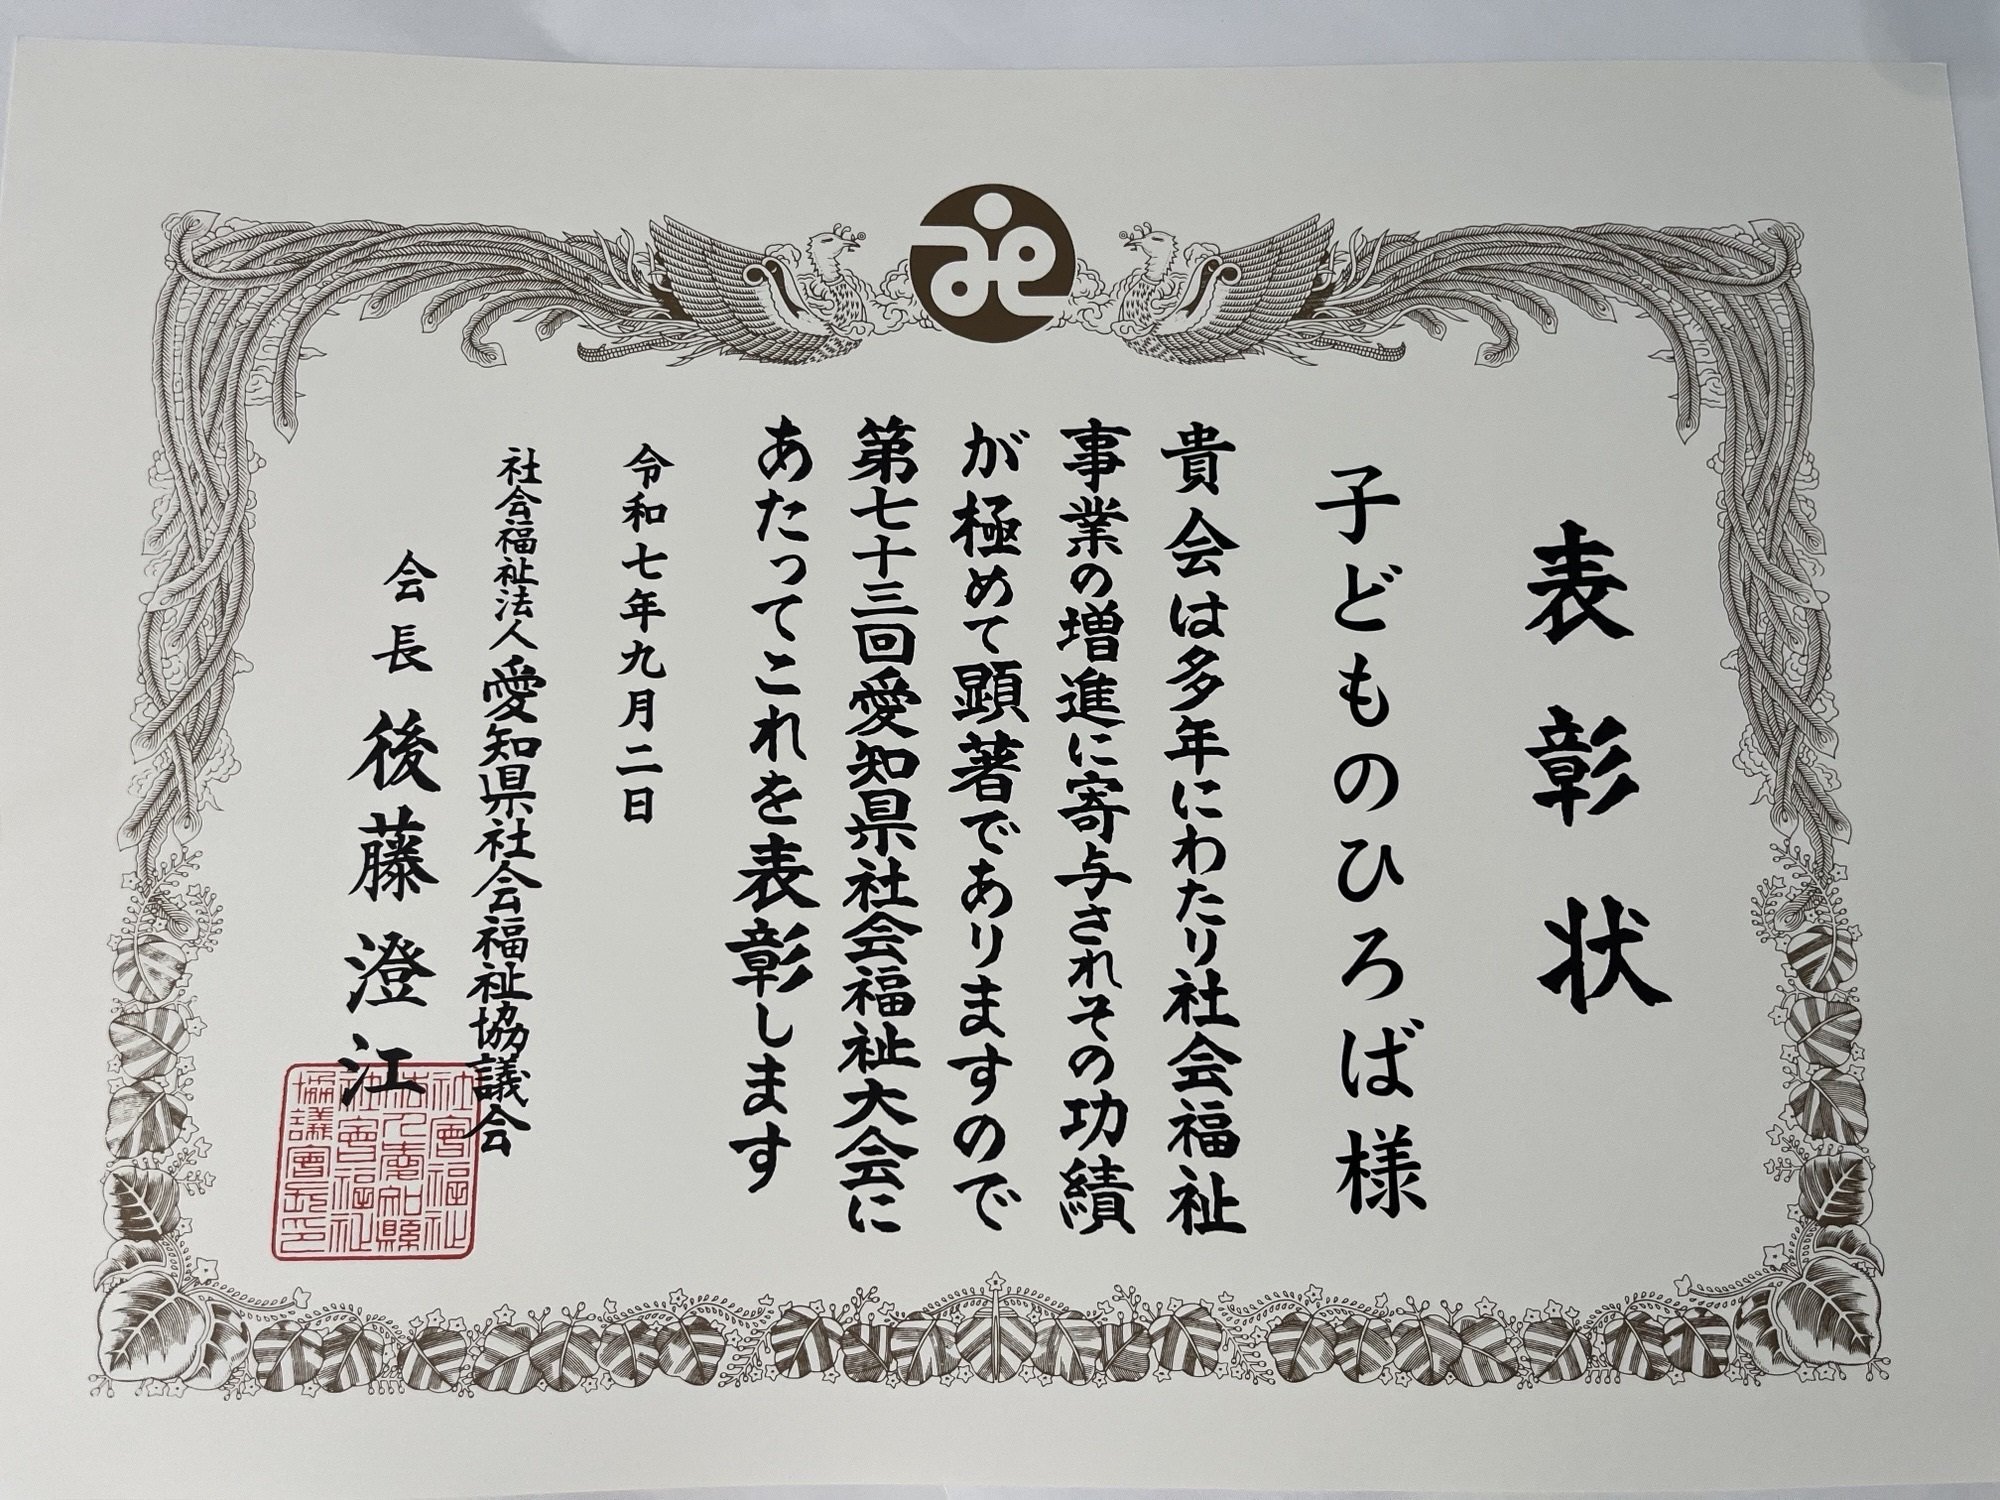 表彰状
子どものひろば様
貴会は多年にわたり社会福祉
事業の増進に寄与されその功績
が極めて顕著でありますので
第七十三回愛知県社会福祉大会に
あたってこれを表彰します
令和七年九月二日
社会福祉法人愛知県社会福祉協議会
会長後藤澄江